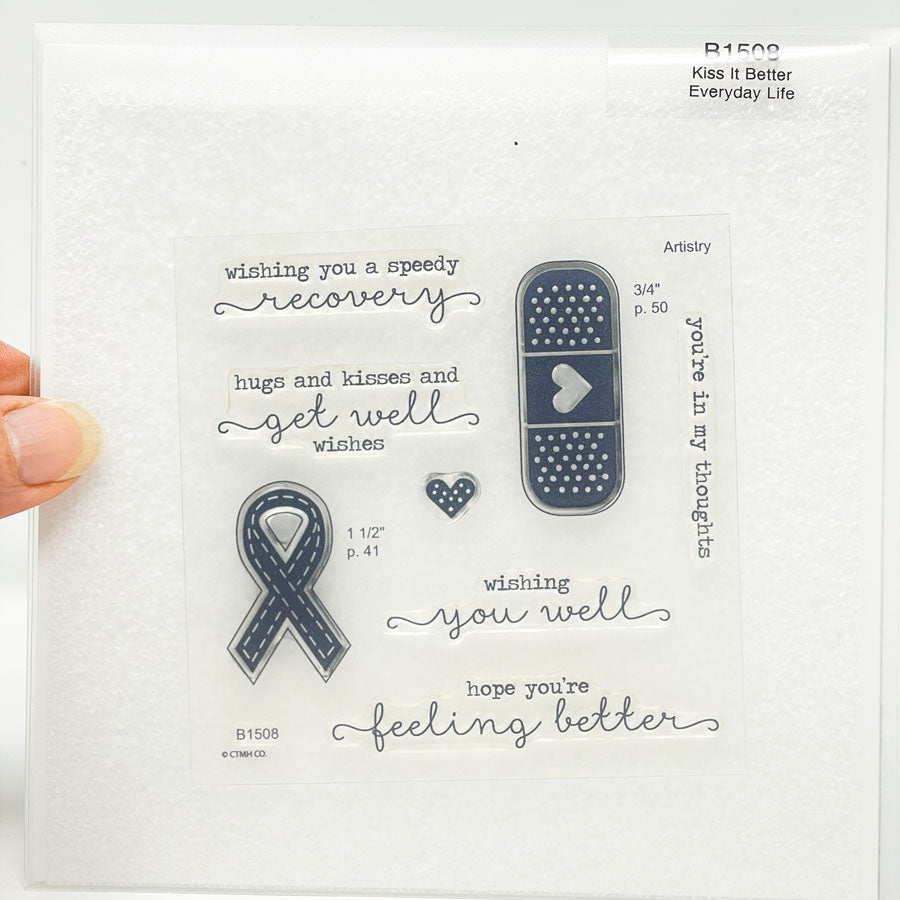 B1508
Kiss It Better
Everyday Life
Artistry
wishing you a speedy
recovery
3/4"
p. 50
you're in my thoughts
hugs and kisses and
get well
wishes
1 1/2"
p. 41
wishing
you well
hope you're
feeling better
B1508
© CTMH CO.